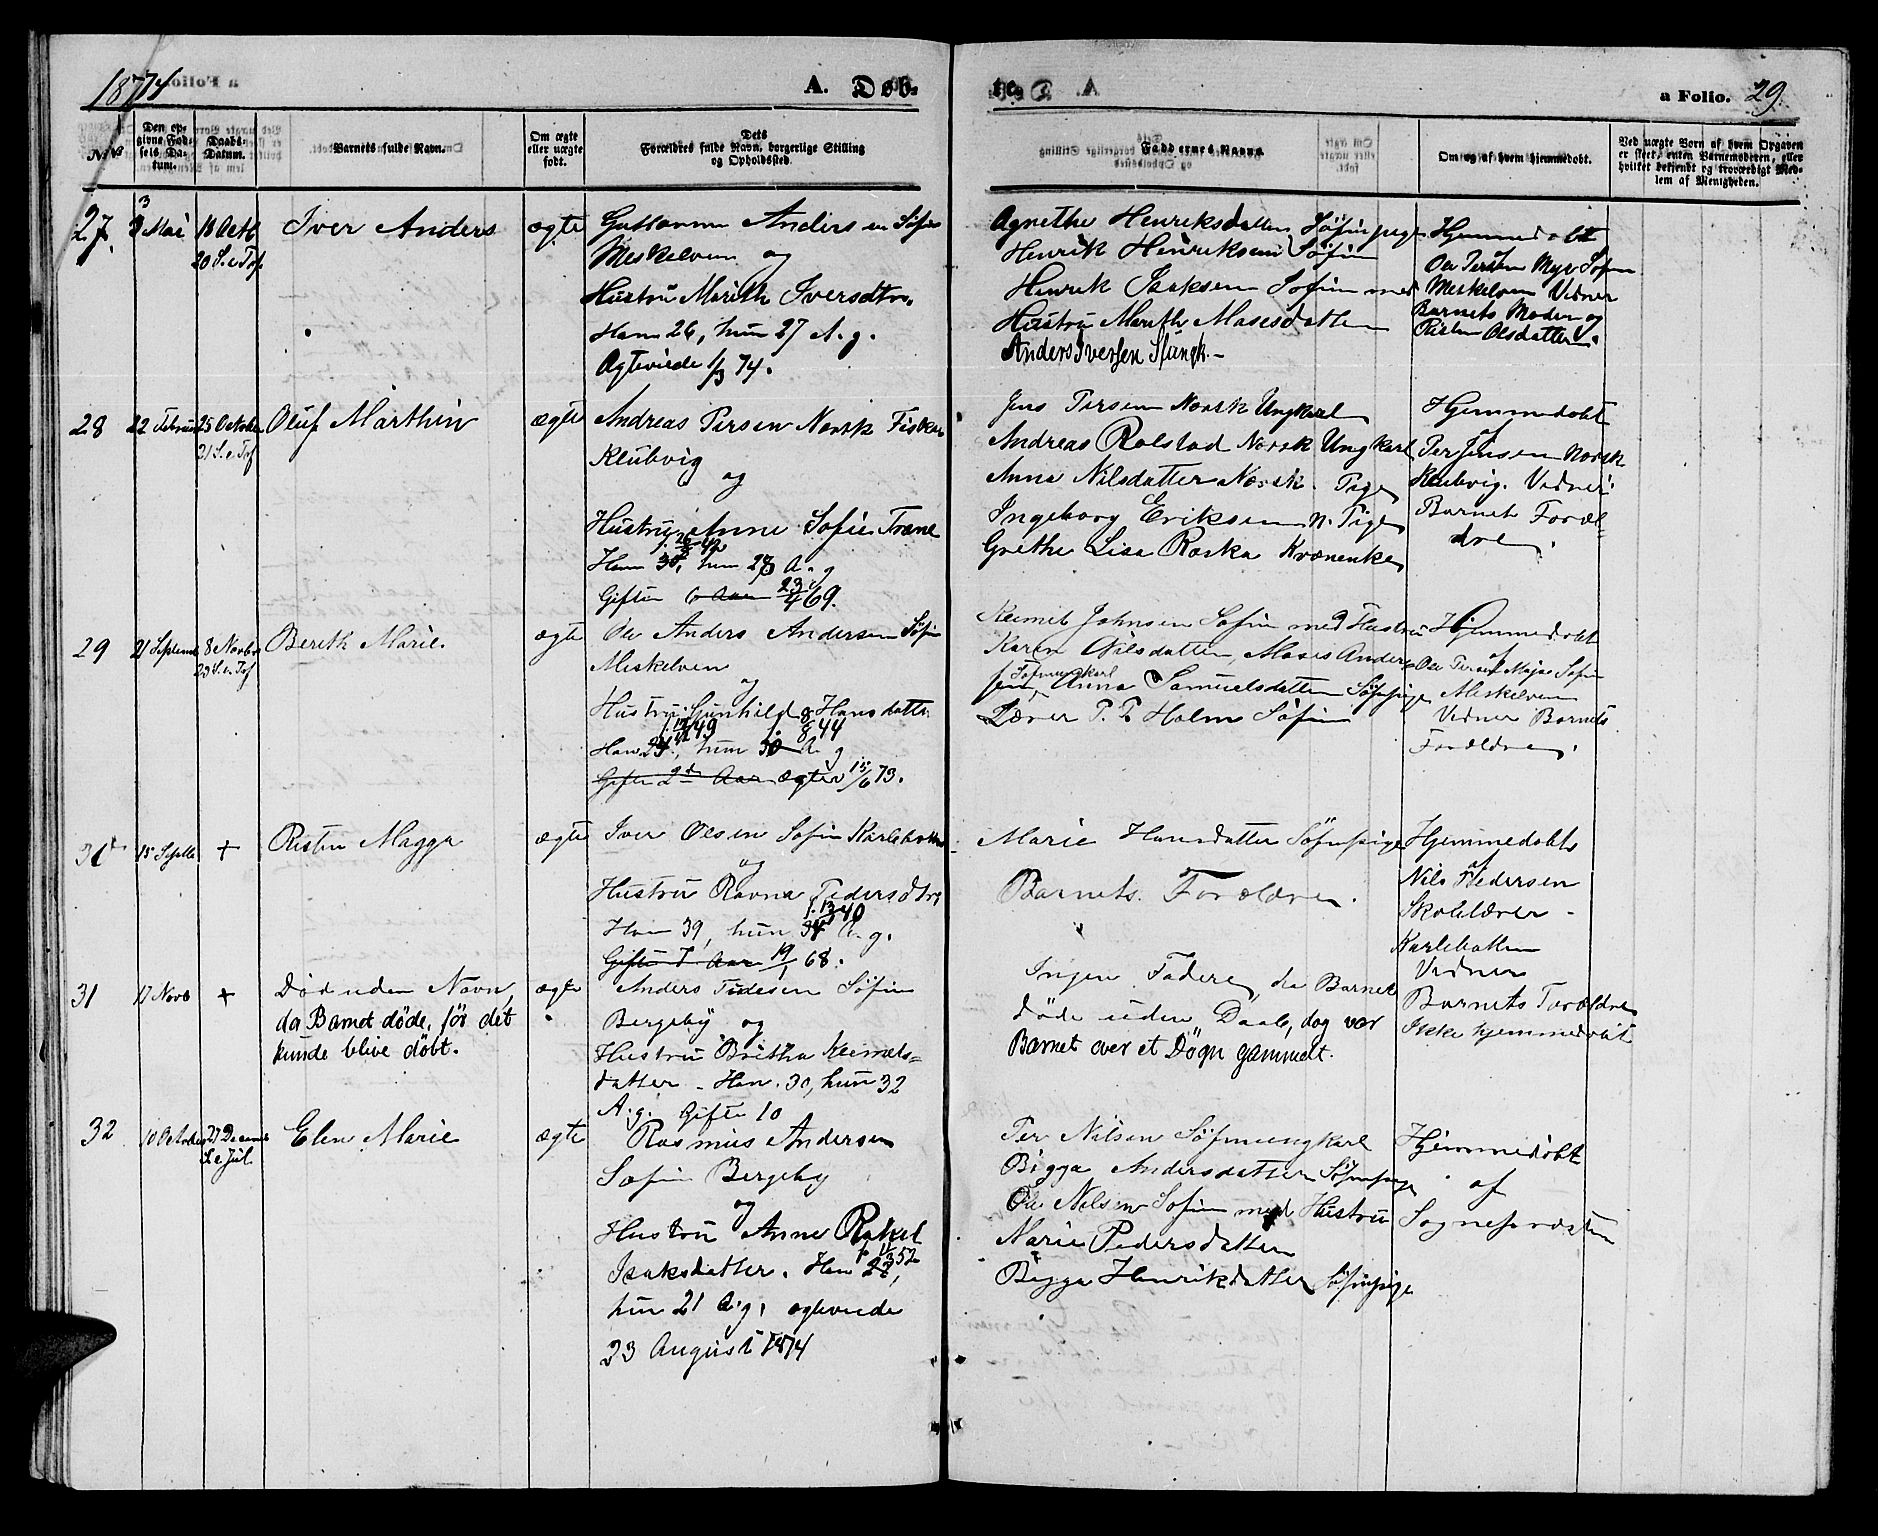 1874
A. Døb-
te.
a Folio. 29.
No.
Den op-
givne Fød-
sels Da-
tum.
Daabs-
Datum.
Barnets fulde Navn.
Om ægte
eller uægte
født.
Dets
Forældres fulde Navn, borgerlige Stilling
og Opholdssted.
Faddernes Navne.
Om og af hvem hjemmedøbt.
Ved uægte Børn af hvem Opgaven
er skeet, enten Barnemoderen, eller
hvilket bekjendt og troværdigt Med-
lem af Menigheden.
27. 3 Mai 18 Octb
20 S. e Trf.
Iver Anders
ægte
Andersen Søfin
Meskelven og
Hustru Marith Iversdtr.
Han 26, hun 27 A. g.
Ægteviede 1/3 74.
Agnethe Henriksdatter Søfinpige
Henrik Henriksen Søfin
Henrik Isaksen Søfin med
Hustru Marith Mosesdatter
Anders Iversen Sfungk.-
Hjemmedøbt
af
Ole Persen Søfin
Meskelven Vidner
Barnets Moder og
Olsdatter.
28 22 Februar 25 October
21 S. e Trf
Oluf Marthin
ægte
Andreas Persen Norsk Fisker
Klubvig
og
Hustru Anne Sofie Trane
Han 30, hun 28 A. g
Gifte 6 Aar 23/4 69.
Jens Persen Norsk Ungkarl
Andreas Rolstad Norsk Ungkarl
Anna Nilsdatter Norsk Pige
Ingeborg Eriksen N. Pige
Grethe Lisa Roska Kvænenke
Hjemmedøbt
af
Per Jensen Norsk
Klubvig. Vidner
Barnets Foræl-
dre.
29 21 Septemb 8 Novbr
23 S. e. Trf
Berith Marie.
ægte
Ole Anders Andersen Søfin
Meskelven
og
Hustru Gunhild Hansdatter
49 44
Han 24, hun 30 A. g
Gifte 2d Aar Ægtev 15/6 73.
Johnsen Søfin med Hustru
Karen Nilsdatter, Moses Ander-
Søfinungkarl
sen, Anna Samuelsdatter Søfinpige
Lærer P. P. Holm Søfin
Hjemmedøbt
af
Ole Persen Søfin
Meskelven
Vidner Barnets
Forældre.
30 15 Septb +
Risten Magga
ægte
Iver Olsen Søfin Karlebotten
og
Hustru Ravna Pedersdtr.
f. 13/ 40
Han 39, hun 34 A. g.
Gifte 7 Aar 19/1 68.
Marie Hansdatter Søfinpige
Barnets Forældre.
Hjemmedøbt
af
Nils Pedersen
Skolelærer -
Karlebotten
Vidner
Barnets Forældre
31 17 Novb +
Død uden Navn,
da Barnet døde, før det
kunde blive døbt.
ægte
Anders Søfin
Bergeby og
Hustru Britha
datter - Han 30, hun 32
A. g. Gifte 10
Ingen Faddere, da Barnet
døde uden Daab, dog var
Barnet over et Døgn gammelt.
Ikke hjemmedøbt
32 10 October 27 Decemb
S. e Jul.
Elen Marie
ægte
Rasmus Andersen
Søfin Bergeby
og
Hustru Anne Rakel
Isaksdatter. Han 22,
hun 21 A. g. ægteviede
23 August 1874
Per Nilsen Søfinungkarl
Bigga Andersdatter Søfinpige
Ole Nilsen Søfin med Hustru
Marie Pedersdatter
Bigga Henrikdatter Søfinpige
Hjemmedøbt
af
Sognepræsten